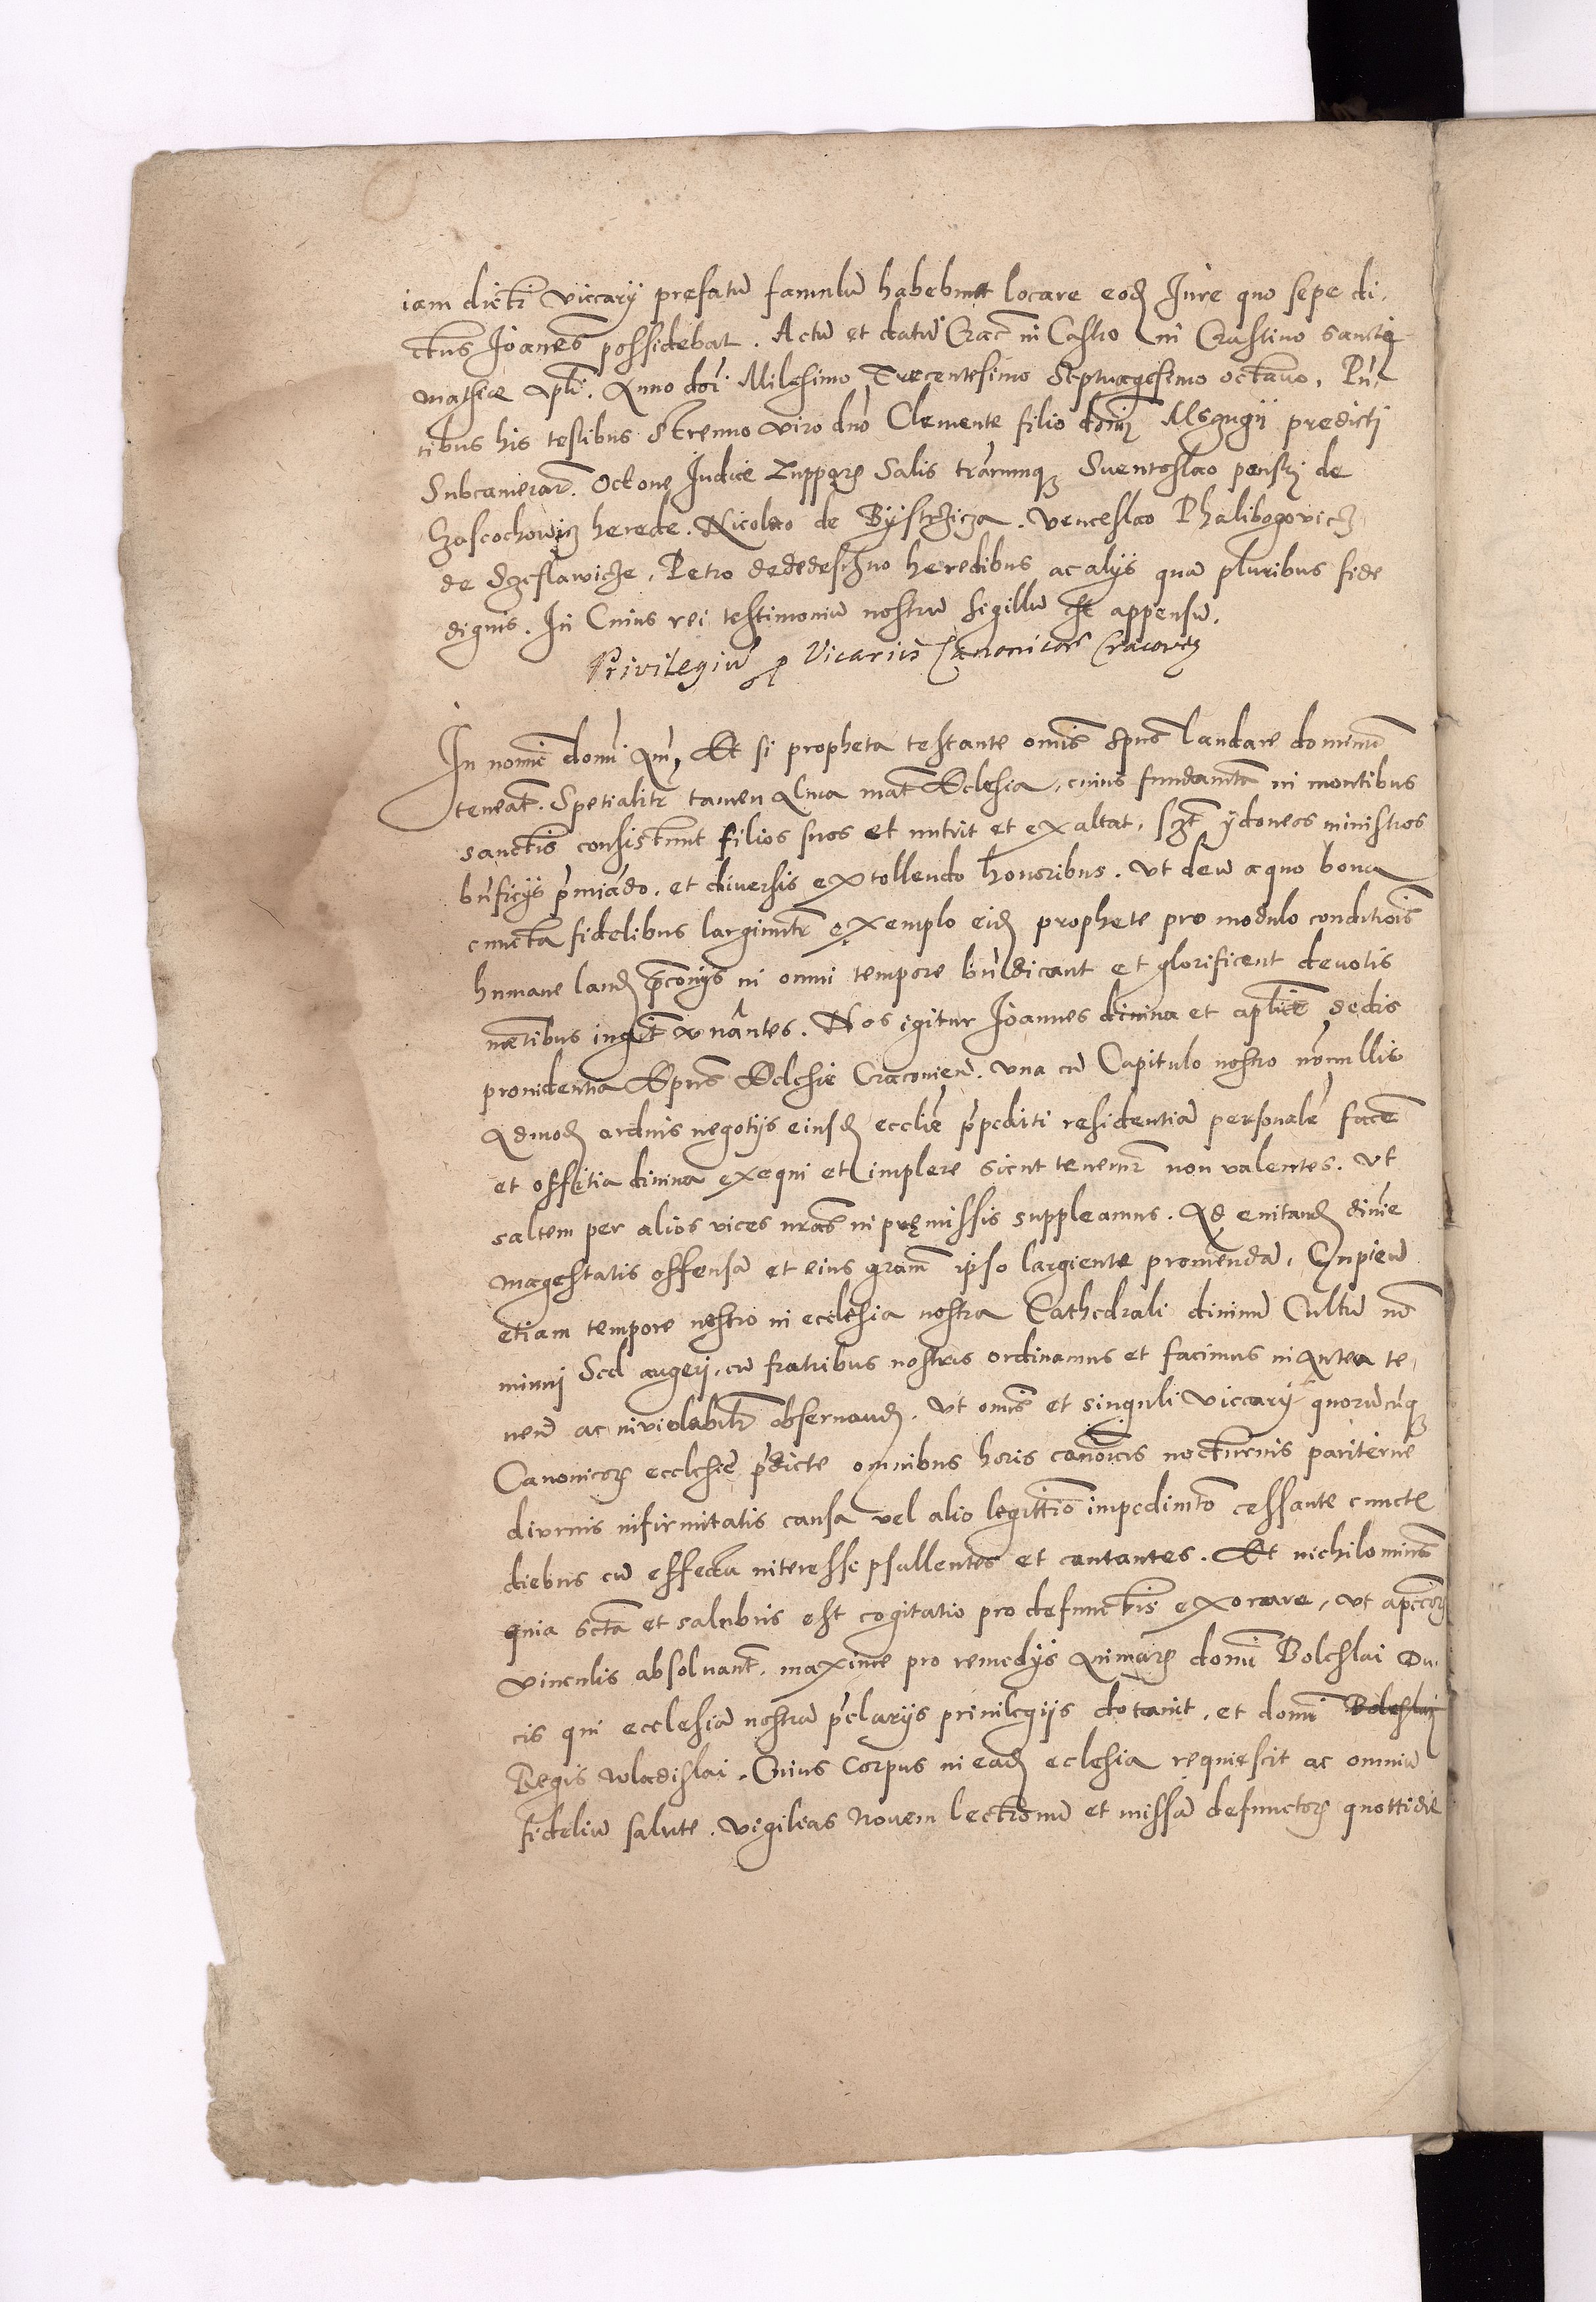 iam dicti viccarÿ prefatũ famulũ habebũt locare eodẽ Iure quo sepe di,
ctus Ioanes possidebat. Actũ et datũ Crac̃ in Castro in Crastino sancte
mathiæ apl̃i. Anno dñi Milesimo Trecentesimo Septuagesimo octauo, Pñ,
tibus his testibus Strenuo viro dño Clemente filio dm̃ Msczugii predicti
Subcamerar̃. Octone Iudice Zuppaꝝ Salis terrarumqꝫ Suentoslao
herede. Nicolao de Bÿstrzicza. Venceslao Phalibogovicz
de Sczeslawicze, Petro heredibus ac alÿs quã pluribus fide
dignis. In Cuius rei testimoniũ nostrũ sigillũ est appensũ.
Privilegiũ ꝓ Vicariis Canonicoꝝ Cracoviẽ
In nomĩe domĩ Am̃, Et si propheta testante omĩs spũs laudare dominũ
teneat̃. Spetialitr̃ tamen Alma mat̃ Ecclesia, cuius fundamẽta in montibus
sanctis consistunt filios suos et nutrit et exaltat, sz̃t ÿdoneos ministros
bñficÿs p̃miãdo. et diuersis extollendo honoribus. Vt deũ a quo bona
cuncta fidelibus largiuntr̃ exemplo eiꝰdẽ prophete pro modulo conditiõis
humane laudũ p̃conÿs in omni tempore bñdicant et glorificent deuotis
mẽtibus Nos igitur Ioannes diuina et aplicẽ sedis
prouidentia Ep̃us Ecclesie Cracouien̄. vna cũ Capitulo nostro nõnullis
Admodũ arduis negotÿs eiusdẽ ecclie p̃pediti residentiã personalẽ facẽ
et offitia diuina exequi et implere sicut tenemr̃ non valentes. Vt
saltem per alios vices nr̃as in premissis suppleamus. Ad euitandã diuĩe
magestatis offensã et eius grãm ipso largiente promendã, Cupien̄
etiam tempore nostro in ecclesia nostra Cathedrali diuinũ Cultũ nõ
minui Sed augeri, cũ fratribus nostris ordinamus et facimus in antea te,
nen̄ ac inviolabilitr̃ obseruand̃. Vt omẽs et singuli viccarÿ quorũcũqꝫ
Canonicoꝝ ecclesie p̃dicte omnibus horis canõicis nocturnis pariterue
diurnis infirmitatis causa vel alio legittĩo impedimẽto cessante cunctis
diebus cũ effectu interesse psallentes et cantantes. Et nichilominus
quia sctã et salubris est cogitatio pro defunctis exorare, vt a pctõꝝ
vinculis absoluant̃. maxime pro remedÿs Animaꝝ domĩ Boleslai Du,
cis qui ecclesiã nostrã p̃clarÿs priuilegiis dotauit, et domĩ Boleslai
Regis Wladislai. Cuius Corpus in eadẽ ecclesia requiescit ac omniũ
fideliũ salute. vigilias Nouem lectionũ et missã defunctoꝝ quottidie